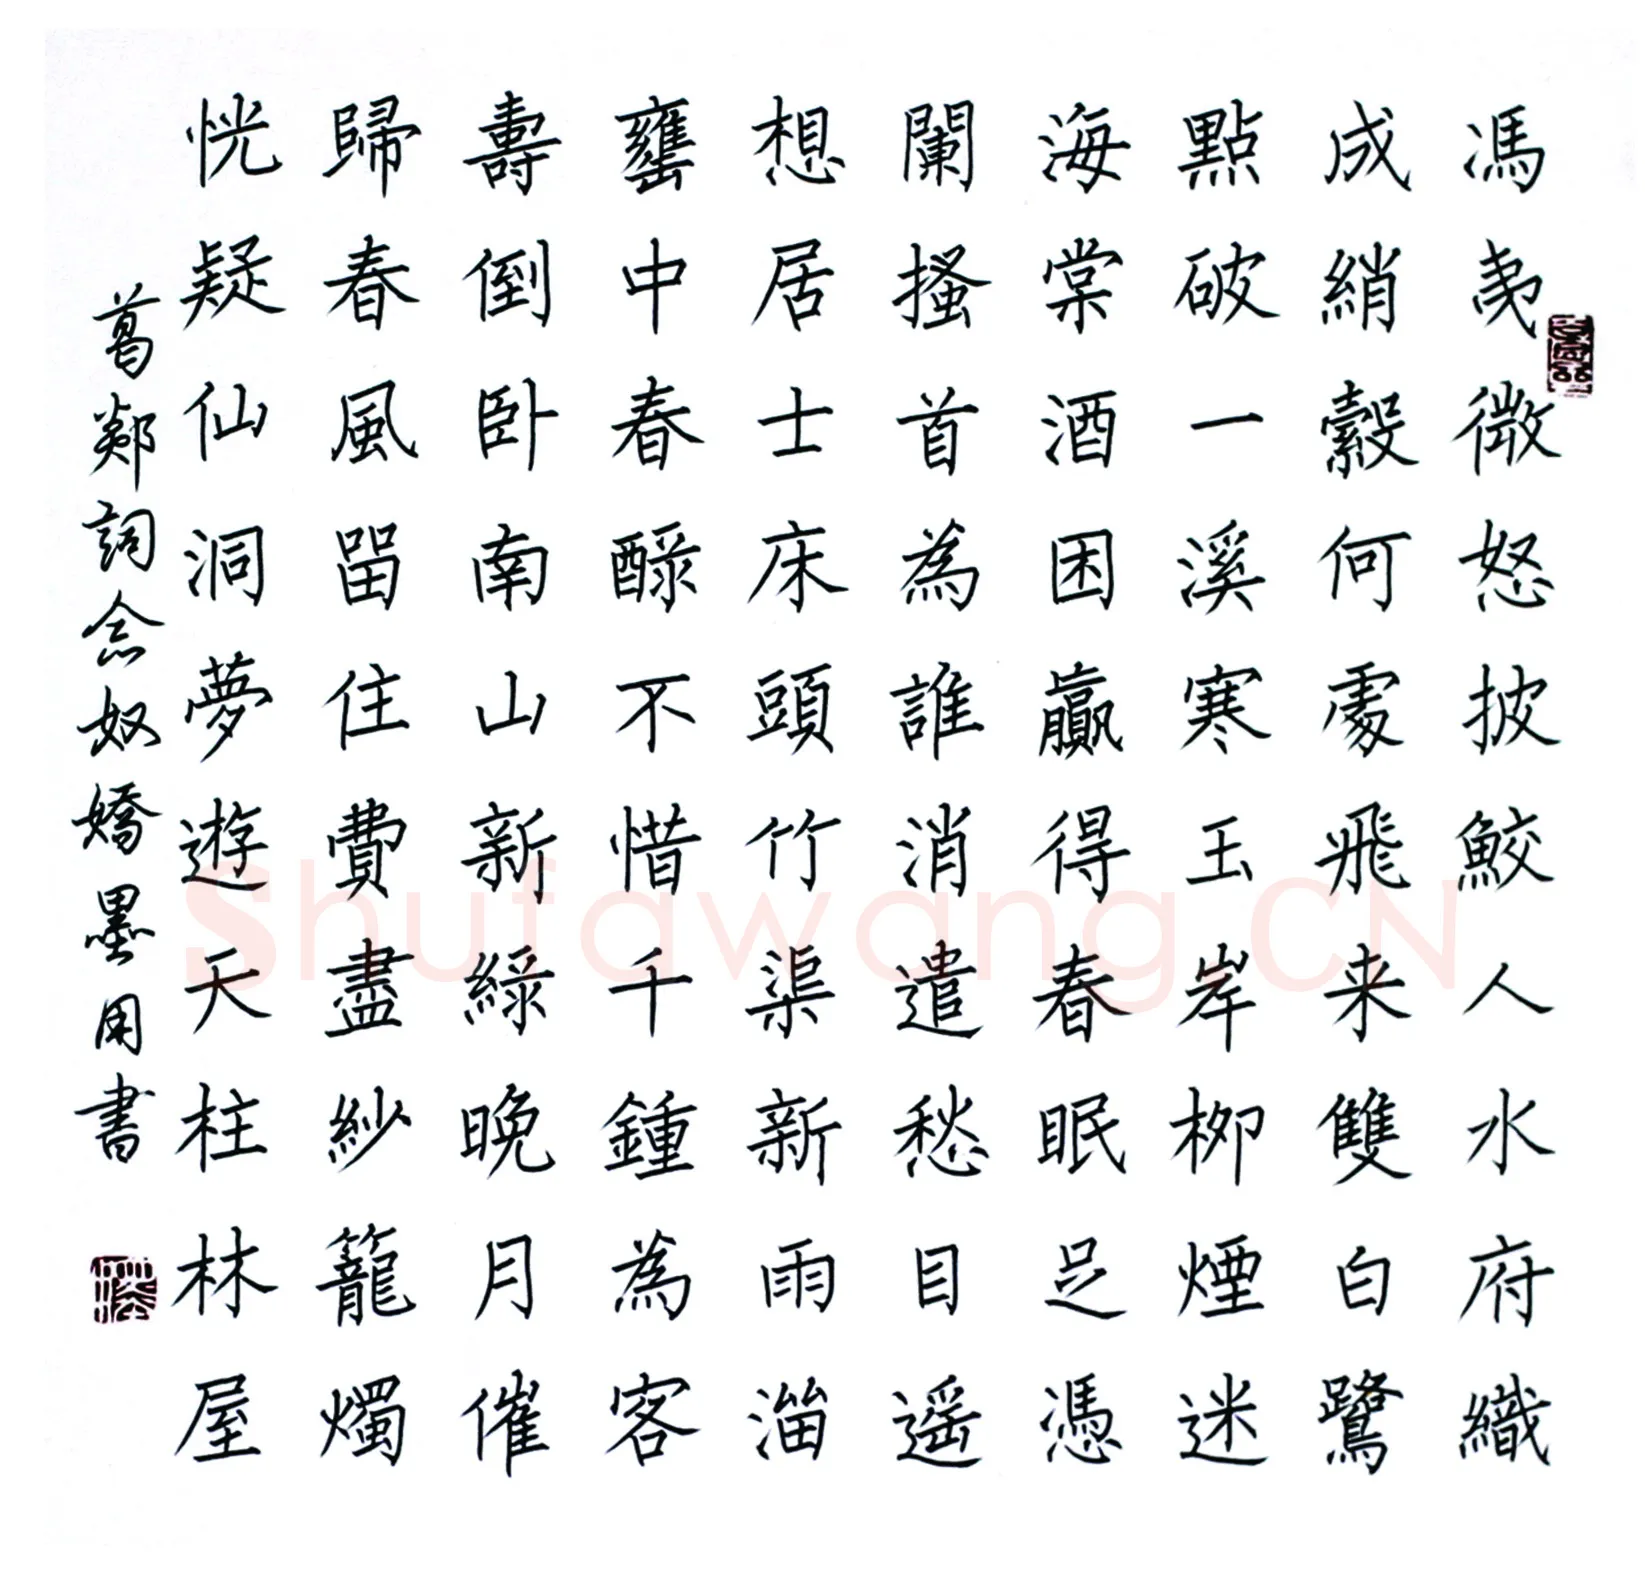 馮夷微怒披鮫人水府織
成綃縠何處飛来雙白鷺
點破一溪寒玉岸柳煙迷
海棠酒困贏得春眠足憑
闌搔首為誰消遣愁目遥
想居士床頭竹渠新雨溜
甕中春醁不惜千鍾為客
壽倒卧南山新綠晚月催
歸春風留住費盡紗籠燭
恍疑仙洞夢遊天柱林屋
葛郯詞念奴嬌墨用書
Shufawang.CN